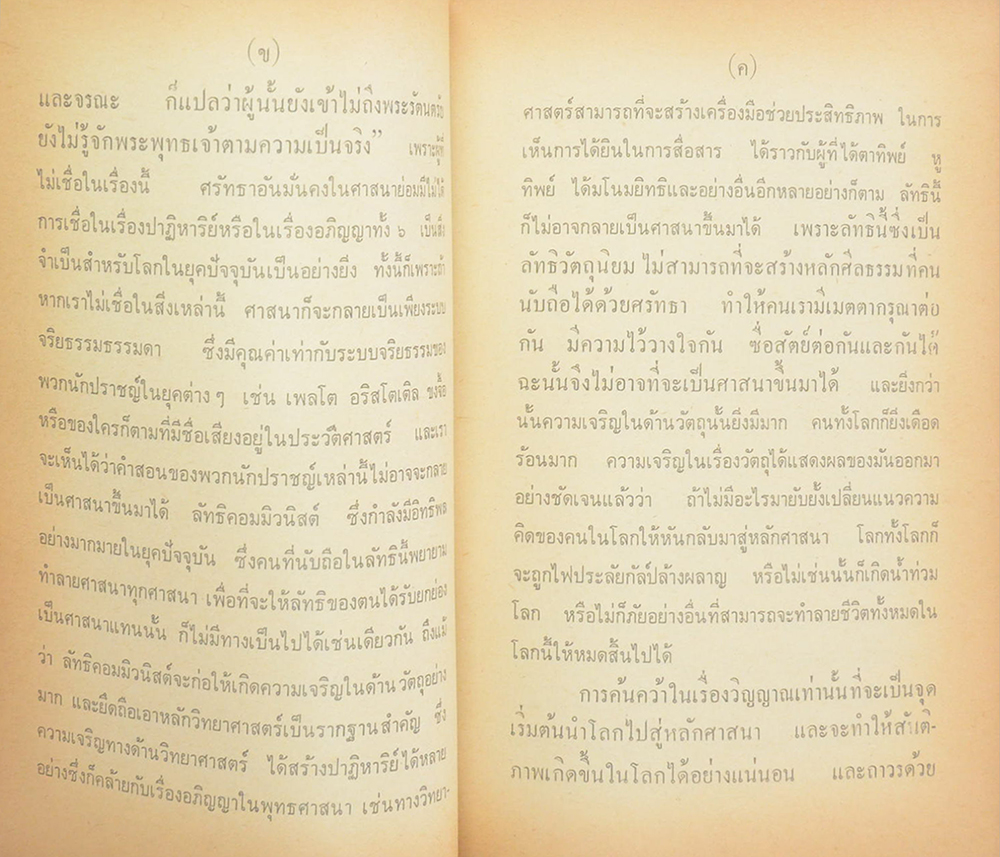 (ข)
และจรณะ ก็แปลว่าผู้นั้นยังเข้าไม่ถึงพระรัตนตรัย
ยังไม่รู้จักพระพุทธเจ้าตามความเป็นจริง” เพราะผู้ที่
ไม่เชื่อในเรื่องนี้ ศรัทธาอันมั่นคงในศาสนาย่อมมีไม่ได้
การเชื่อในเรื่องปาฏิหาริย์หรือในเรื่องอภิญญาทั้ง ๖ เป็นสิ่ง
จำเป็นสำหรับโลกในยุคปัจจุบันเป็นอย่างยิ่ง ทั้งนี้ก็เพราะถ้า
หากเราไม่เชื่อในสิ่งเหล่านี้ ศาสนาก็จะกลายเป็นเพียงระบบ
จริยธรรมธรรมดา ซึ่งมีคุณค่าเท่ากับระบบจริยธรรมของ
พวกนักปราชญ์ในยุคต่าง ๆ เช่น เพลโต อริสโตเติล ขงจื้อ
หรือของใครก็ตามที่มีชื่อเสียงอยู่ในประวัติศาสตร์ และเรา
จะเห็นได้ว่าคำสอนของพวกนักปราชญ์เหล่านี้ไม่อาจจะกลาย
เป็นศาสนาขึ้นมาได้ ลัทธิคอมมิวนิสต์ ซึ่งกำลังมีอิทธิพล
อย่างมากมายในยุคปัจจุบัน ซึ่งคนที่นับถือในลัทธินี้พยายาม
ทำลายศาสนาทุกศาสนา เพื่อที่จะให้ลัทธิของตนได้รับยกย่อง
เป็นศาสนาแทนนั้น ก็ไม่มีทางเป็นไปได้เช่นเดียวกัน ถึงแม้
ว่า ลัทธิคอมมิวนิสต์จะก่อให้เกิดความเจริญในด้านวัตถุอย่าง
มาก และยึดถือเอาหลักวิทยาศาสตร์เป็นรากฐานสำคัญ ซึ่ง
ความเจริญทางด้านวิทยาศาสตร์ ได้สร้างปาฏิหาริย์ได้หลาย
อย่างซึ่งก็คล้ายกับเรื่องอภิญญาในพุทธศาสนา เช่นทางวิทยา-
(ค)
ศาสตร์สามารถที่จะสร้างเครื่องมือช่วยประสิทธิภาพ ในการ
เห็นการได้ยินในการสื่อสาร ได้ราวกับผู้ที่ได้ตาทิพย์ หู
ทิพย์ ได้มโนมยิทธิและอย่างอื่นอีกหลายอย่างก็ตาม ลัทธินี้
ก็ไม่อาจกลายเป็นศาสนาขึ้นมาได้ เพราะลัทธินี้ซึ่งเป็น
ลัทธิวัตถุนิยม ไม่สามารถที่จะสร้างหลักศีลธรรมที่คน
นับถือได้ด้วยศรัทธา ทำให้คนเรามีเมตตากรุณาต่อ
กัน มีความไว้วางใจกัน ซื่อสัตย์ต่อกันและกันได้
ฉะนั้นจึงไม่อาจที่จะเป็นศาสนาขึ้นมาได้ และยิ่งกว่า
นั้นความเจริญในด้านวัตถุนั้นยิ่งมีมาก คนทั้งโลกก็ยิ่งเดือด
ร้อนมาก ความเจริญในเรื่องวัตถุได้แสดงผลของมันออกมา
อย่างชัดเจนแล้วว่า ถ้าไม่มีอะไรมายับยั้งเปลี่ยนแนวความ
คิดของคนในโลกให้หันกลับมาสู่หลักศาสนา โลกทั้งโลกก็
จะถูกไฟประลัยกัลป์ล้างผลาญ หรือไม่เช่นนั้นก็เกิดน้ำท่วม
โลก หรือไม่ก็ภัยอย่างอื่นที่สามารถจะทำลายชีวิตทั้งหมดใน
โลกนี้ให้หมดสิ้นไปได้
การค้นคว้าในเรื่องวิญญาณเท่านั้นที่จะเป็นจุด
เริ่มต้นนำโลกไปสู่หลักศาสนา และจะทำให้สันติ-
ภาพเกิดขึ้นในโลกได้อย่างแน่นอน และถาวรด้วย